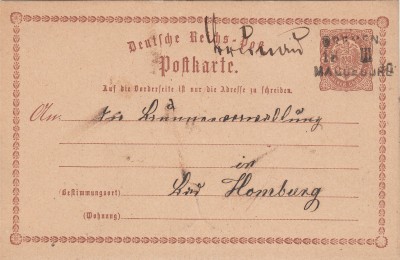 Deutsche Reichs-Post
Postkarte.
BREMEN
18 III
MAGDEBURG
Auf die Vorderseite ist nur die Adresse zu schreiben.
An die Brunnenverwaltung
in
(Bestimmungsort) Bad Homburg
(Wohnung)